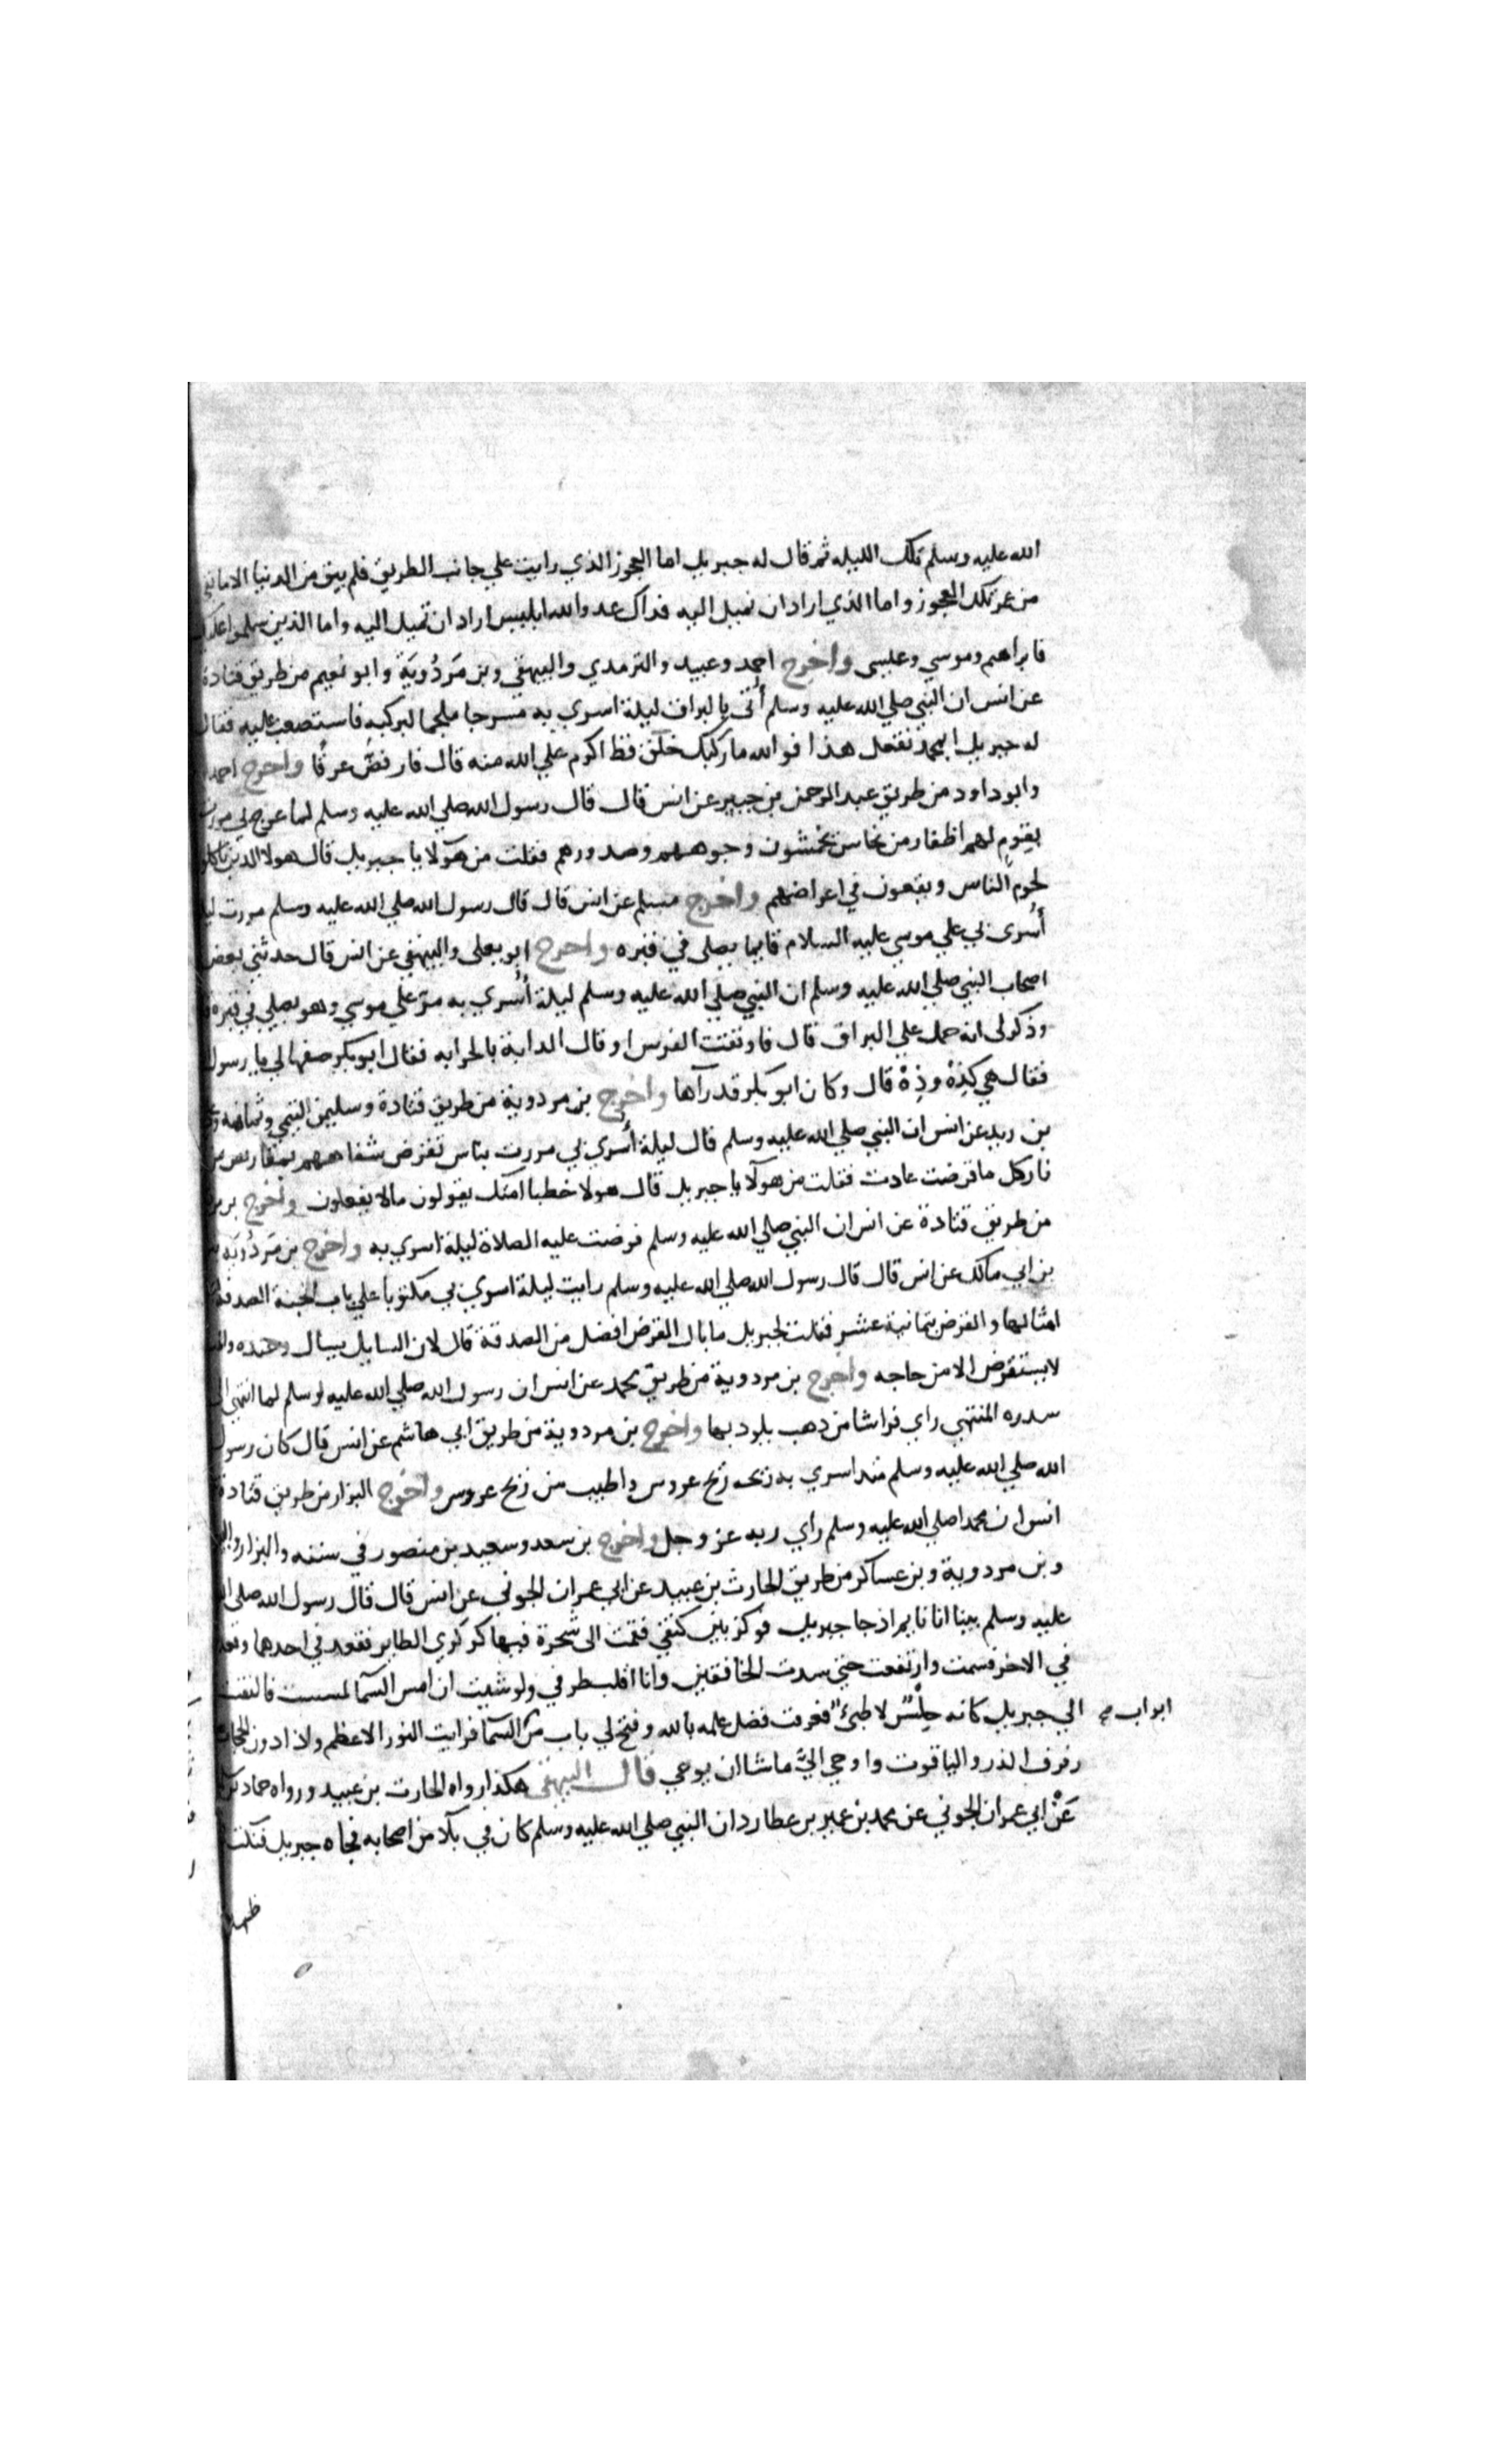 الله عليه وسلم تلك الليله ثم قال له جبريل اما العجوز الذي رايت علي جانب الطريق فلم يبق من الدنيا الا ما بقي
من عمر تلك العجوز واما الذي اراد ان تميل اليه فذاك عدو الله ابليس اراد ان تميل اليه واما الذين سلموا عليك
فابراهيم وموسي وعيسى واخرج احمد وعبيد والترمدي والبيهقي وبن مَردُويَة وابو نعيم من طريق قتادة
عن انس ان النبي صلي الله عليه وسلم أُتى بالبراق ليلة اسري به مسرجا ملجما ليركبه فاستصعب عليه فقال
له جبريل ابمحمد تفعل هذا فوالله ما ركبك خلق قط اكرم علي الله منه قال فارفضَّ عرقًا واخرج احمد
وابو داود من طريق عبد الرحمن بن جبير عن انس قال قال رسول الله صلي الله عليه وسلم لما عرج بي مررت
بقوم لهم اظفار من نحاس يخمشون وجوههم وصدورهم فقلت من هآولا يا جبريل قال هولا الذين ياكلون
لحوم الناس ويقعون في اعراضهم واخرج مسلم عن انس قال قال رسول الله صلي الله عليه وسلم مررت ليلة
أُسرى بي علي موسي عليه السلام قايما يصلى في قبره واخرج ابو يعلى والبيهقي عن انس قال حدثني بعض
اصحاب النبي صلي الله عليه وسلم ان النبي صلي الله عليه وسلم ليلة أُسري به مرّ علي موسي وهو يصلي في قبره
وذكر لى انه حمل علي البراق قال فاوثقت الفرس او قال الدابة بالحرابه فقال ابو بكر صفها لي يا رسول
فقال هي كذِهْ وذِهْ قال وكان ابو بكر قد رآها واخرج بن مردوية من طريق قتادة وسليمن التيمي وثمامه
بن ربد عن انس ان النبي صلي الله عليه وسلم قال ليلة أُسري بي مررت بناس تقرض شفاههم بمقاريض من
نار كل ما قرضت عادت فقلت من هوآلا يا جبريل قال هولا خطبا امتك يقولون مالا يفعلون واخرج
من طريق قتادة عن انس ان النبي صلي الله عليه وسلم فرضت عليه الصلاة ليلة اسري به واخرج بن مَردُويَه
بن ابي مالك عن انس قال قال رسول الله صلي الله عليه وسلم رايت ليلة اسري بي مكتوبا علي باب الجنة الصدقة
امثالها والقرض بثمانية عشر فقلت لجبريل ما بال القرض افضل من الصدقة قال لان السايل يسال وعنده
لا يستقرض الا من حاجه واخرج بن مردوية من طريق محمد عن انس ان رسول الله صلي الله عليه وسلم لما انتهى الى
سدره المنتهي راي فراشا من دهب يلود بها واخرج بن مردوية من طريق ابي هاشم عن انس قال كان رسول
الله صلي الله عليه وسلم منذ اسري به ريحه ريح عروس واطيب من ريح عروس واخرج البزار من طريق قتادة
انس ان محمدا صلي الله عليه وسلم راي ربه عز وجل واخرج بن سعد وسعيد بن منصور في سننه والبزار
وبن مردوية وبن عساكر من طريق الحارث بن عبيد عن ابي عمران الجوني عن انس قال قال رسول الله صلى الله
عليه وسلم بينا انا نايم اذ جا جبريل فوكز بين كتفي فقمت الى شجرة فيها كوكري الطاير فقعد في احدهما وقعدت
في الاخر فسمت وارتفعت حتي سدت الخافقين وانا اقلب طرفي ولو شيت ان امس السمآ لمسست فالتفت
الي جبريل كانه حِلْسٌ لاطيٌ فعرفت فضل علمه بالله وفتح لي باب من السما فرايت النور الاعظم ولاذا دوني الحجاب
ابواب
رفرف الدر والياقوت واوحي اليَّ ما شا ان يوحي قال البيهقي هكذا رواه الحارث بن عبيد ورواه حماد بن
عَنْ ابي عمران الجوني عن محمد بن عمير بن عطارد ان النبي صلي الله عليه وسلم كان في ملآ من اصحابه فجاه جبريل فنكت